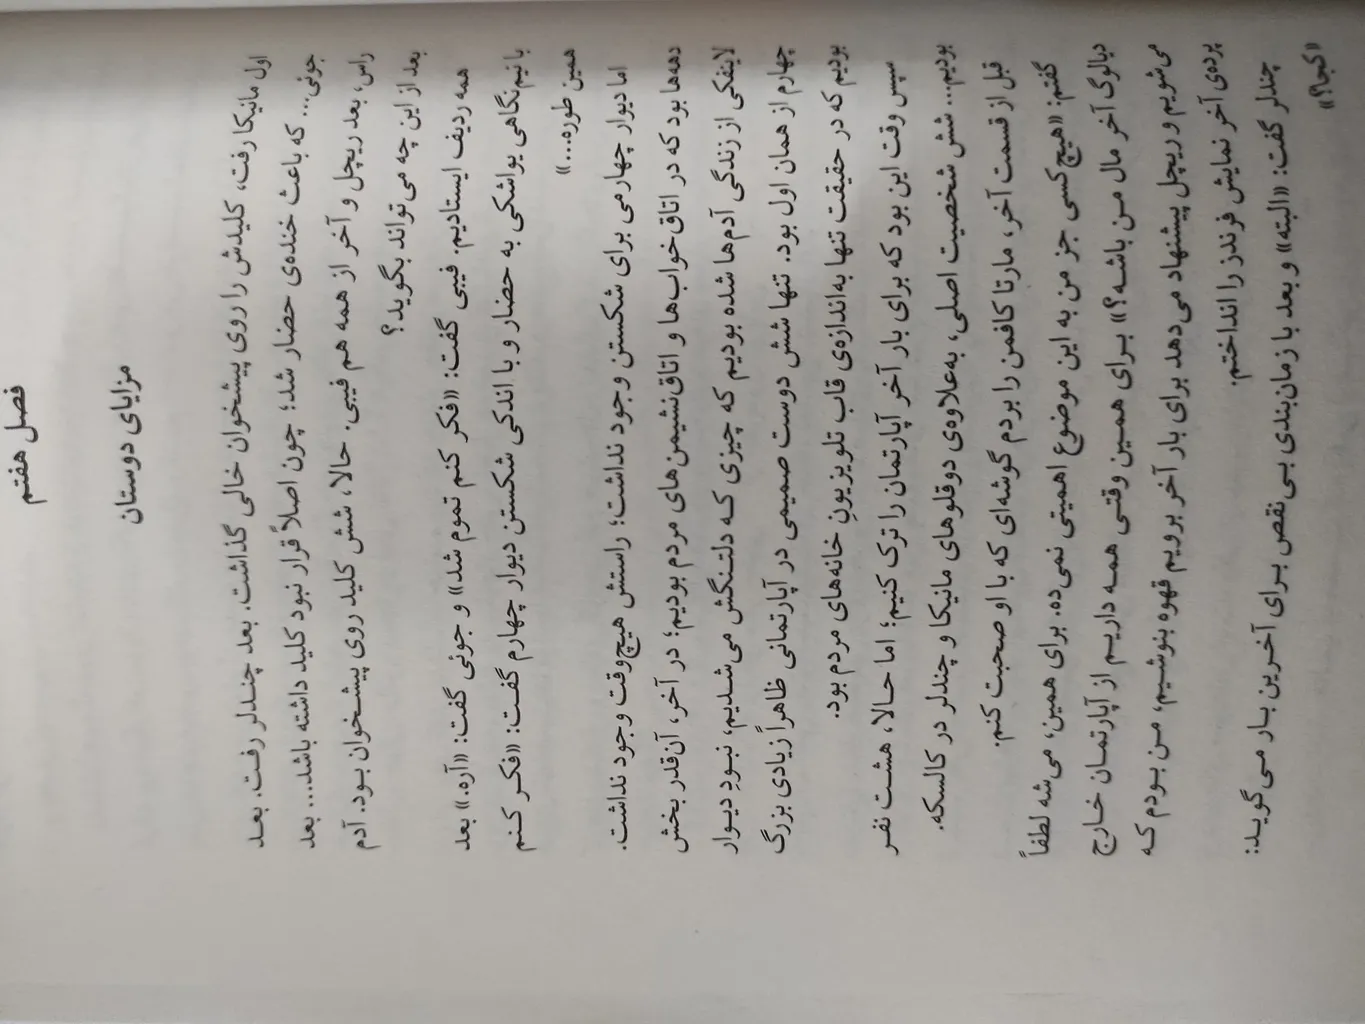 فصل هفتم
مزایای دوستان
اول مانیکا رفت، کلیدش را روی پیشخوان خالی گذاشت. بعد چندلر رفت. بعد
جوئی... که باعث خنده‌ی حضار شد؛ چون اصلاً قرار نبود کلید داشته باشد... بعد
راس، بعد ریچل و آخر از همه هم فیبی. حالا، شش کلید روی پیشخوان بود. آدم
بعد از این چه می‌تواند بگوید؟
همه ردیف ایستادیم. فیبی گفت: «فکر کنم تموم شد» و جوئی گفت: «آره.» بعد
با نیم‌نگاهی یواشکی به حضار و با اندکی شکستن دیوار چهارم گفت: «فکر کنم
همین طوره...»
اما دیوار چهارمی برای شکستن وجود نداشت؛ راستش هیچ‌وقت وجود نداشت.
دهه‌ها بود که در اتاق‌خواب‌ها و اتاق‌نشیمن‌های مردم بودیم؛ در آخر، آن‌قدر بخش
لاینفکی از زندگی آدم‌ها شده بودیم که چیزی که دلتنگش می‌شدیم، نبودِ دیوار
چهارم از همان اول بود. تنها شش دوست صمیمی در آپارتمانی ظاهراً زیادی بزرگ
بودیم که در حقیقت تنها به‌اندازه‌ی قاب تلویزیونِ خانه‌های مردم بود.
سپس وقت این بود که برای بار آخر آپارتمان را ترک کنیم؛ اما حالا، هشت نفر
بودیم... شش شخصیت اصلی، به‌علاوه‌ی دوقلوهای مانیکا و چندلر در کالسکه.
قبل از قسمت آخر، مارتا کافمن را بردم گوشه‌ای که با او صحبت کنم.
گفتم: «هیچ‌کسی جز من به این موضوع اهمیتی نمی‌ده. برای همین، می‌شه لطفاً
دیالوگ آخر مال من باشه؟» برای همین وقتی همه داریم از آپارتمان خارج
می‌شویم و ریچل پیشنهاد می‌دهد برای بار آخر برویم قهوه بنوشیم، من بودم که
پرده‌ی آخر نمایش فرندز را انداختم.
چندلر گفت: «البته» و بعد با زمان‌بندی بی‌نقص برای آخرین بار می‌گوید:
«کجا؟»